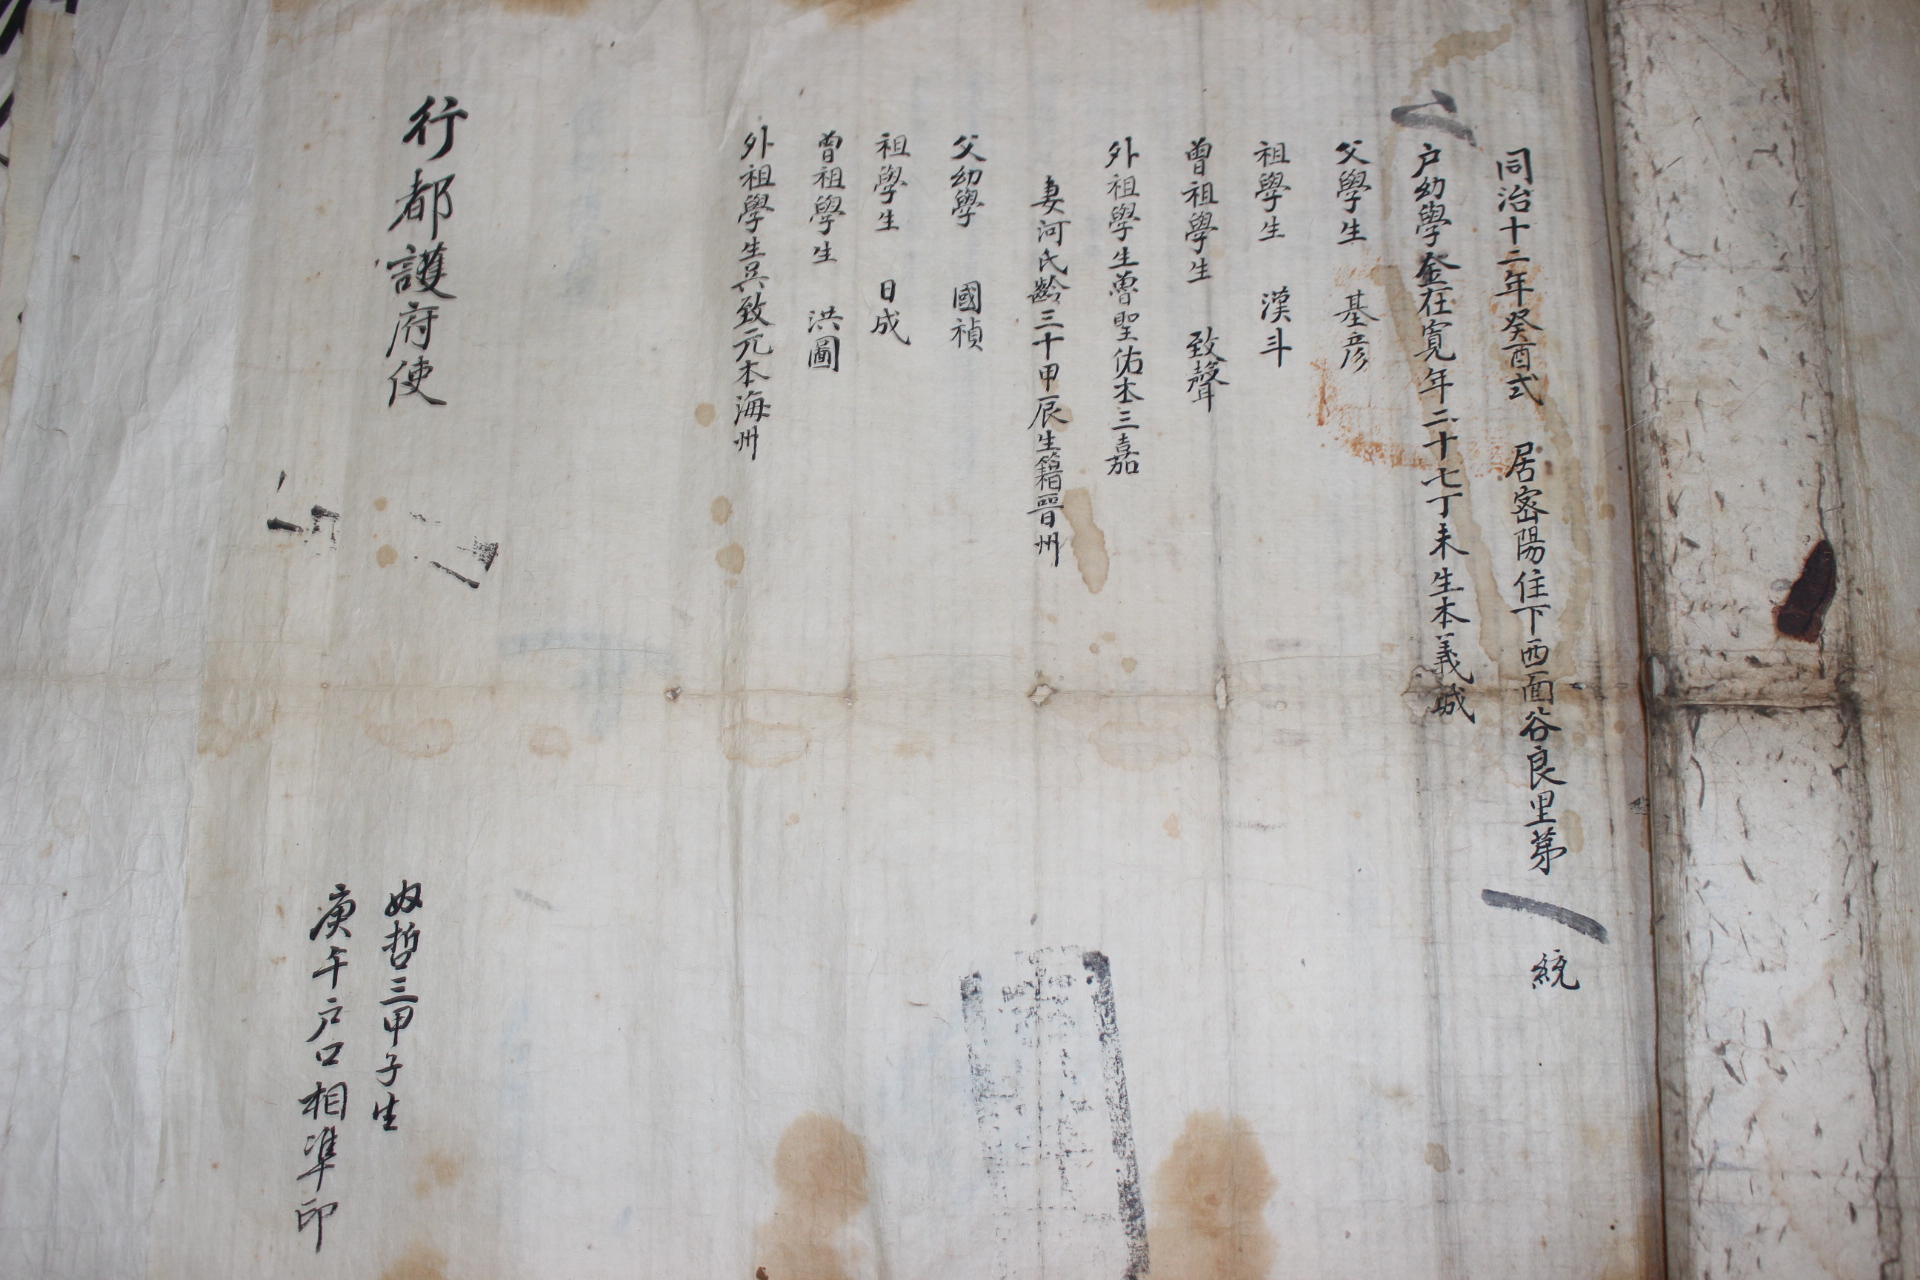 同治十二年癸酉式 居密陽住下西面谷良里苐 統
户幼學金在寬年二十七丁未生本義城
父學生 基彦
祖學生 漢斗
曾祖學生 致聲
外祖學生魯聖佑本三嘉
妻河氏齡三十甲辰生籍晉州
父幼學 國禎
祖學生 日成
曾祖學生 洪圖
外祖學生吳致元本海州
行都護府使
奴哲三甲子生
庚午户口相準印